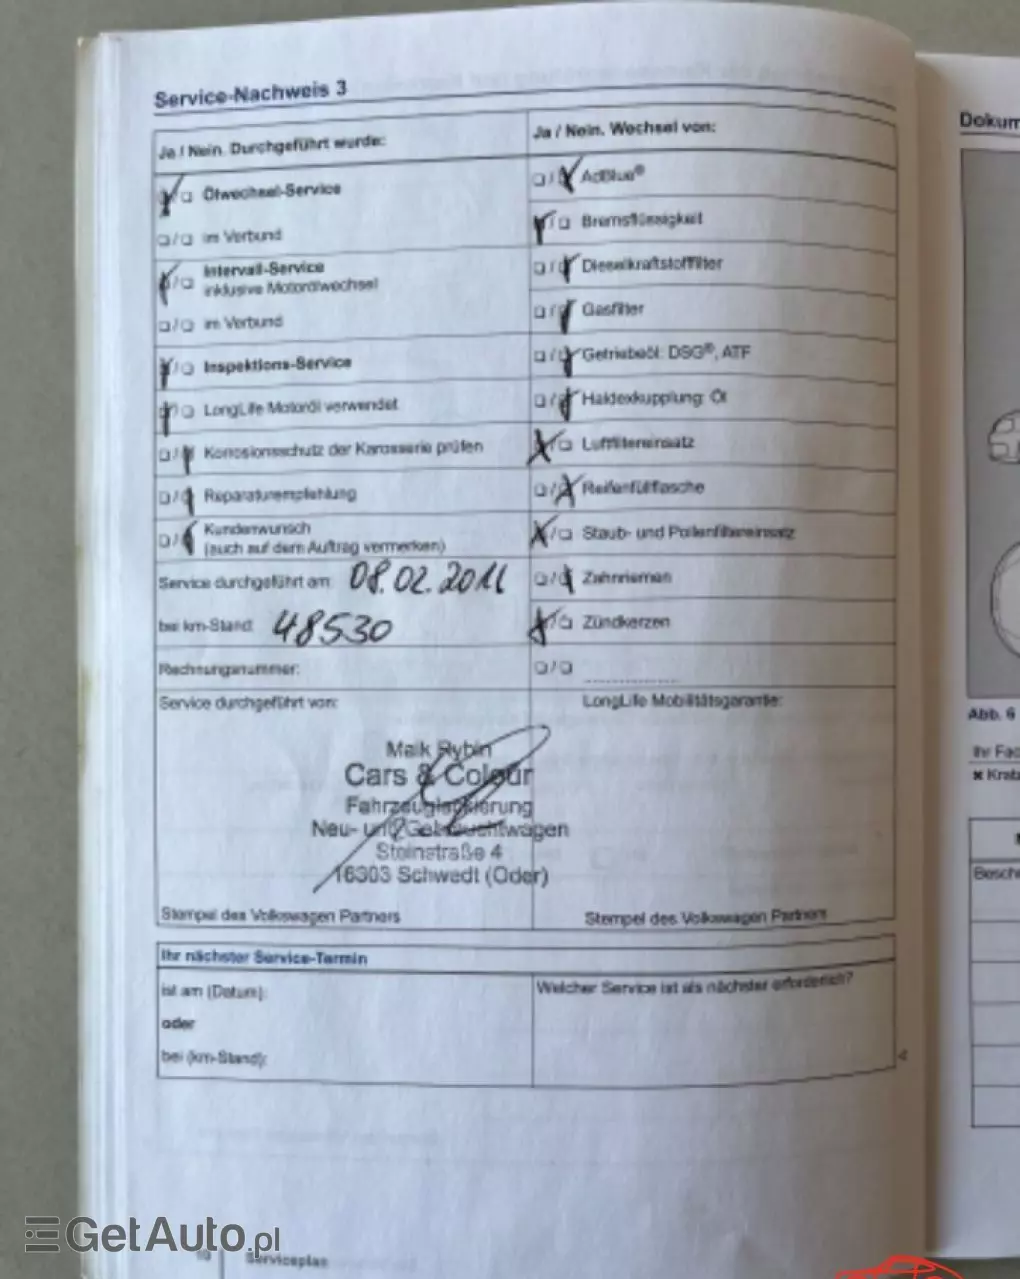 Service-Nachweis 3
Ja / Nein. Durchgeführt wurde:
Ölwechsel-Service
im Verbund
Intervall-Service
inklusive Motorölwechsel
im Verbund
Inspektions-Service
LongLife Motoröl verwendet
Korrosionsschutz der Karosserie prüfen
Reparaturempfehlung
Kundenwunsch
(auch auf dem Auftrag vermerken)
Service durchgeführt am:
bei km-Stand: 48530
Rechnungsnummer:
Service durchgeführt von:
Maik Rybin
Cars & Colour
Fahrzeuglackierung
Neu- und Gebrauchtwagen
Steinstraße 4
16303 Schwedt (Oder)
Stempel des Volkswagen Partners
Ja / Nein. Wechsel von:
AdBlue®
Bremsflüssigkeit
Dieselkraftstofffilter
Gasfilter
Getriebeöl: DSG®, ATF
Haldexkupplung: Öl
Luftfiltereinsatz
Reifenfüllflasche
Staub- und Pollenfiltereinsatz
Zahnriemen
Zündkerzen
LongLife Mobilitätsgarantie:
Stempel des Volkswagen Partners
Ihr nächster Service-Termin
ist am (Datum):
oder
bei (km-Stand):
Welcher Service ist als nächster erforderlich?
Serviceplan
Dokum
Abb. 6
Ihr Fac
Kratz
Besch
GetAuto.pl